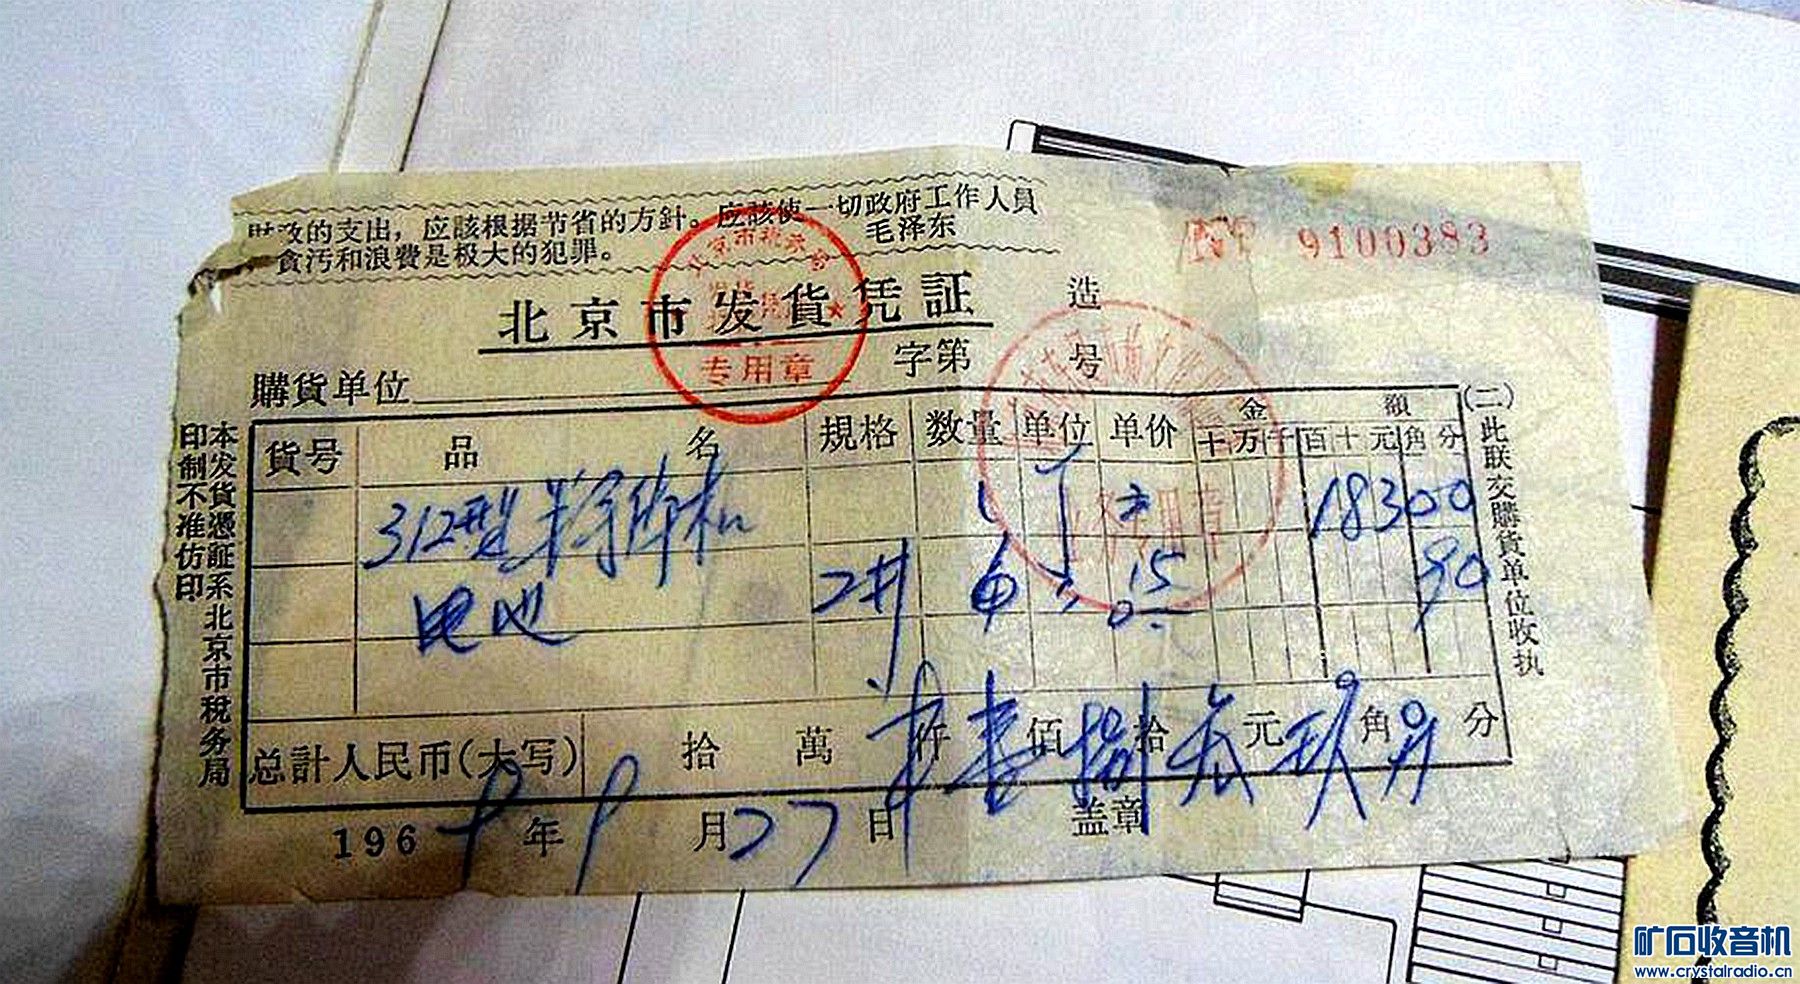 财政的支出，应該根据节省的方針。应該使一切政府工作人員
貪污和浪費是极大的犯罪。 毛泽东
№ 9100383
北京市发貨凭証
造
字第 号
購貨单位
专用章
貨号 品名 規格 数量 单位 单价 金額
十万千百十元角分
312型半导体机 1 18300
电池 2# 6 0.15 90
总計人民币(大写) 拾萬仟壹佰捌拾叁元玖角另分
1969年9月27日 盖章
(二)此联交購貨单位收执
本发貨憑証系北京市稅务局
印制不准仿印
矿石收音机
www.crystalradio.cn